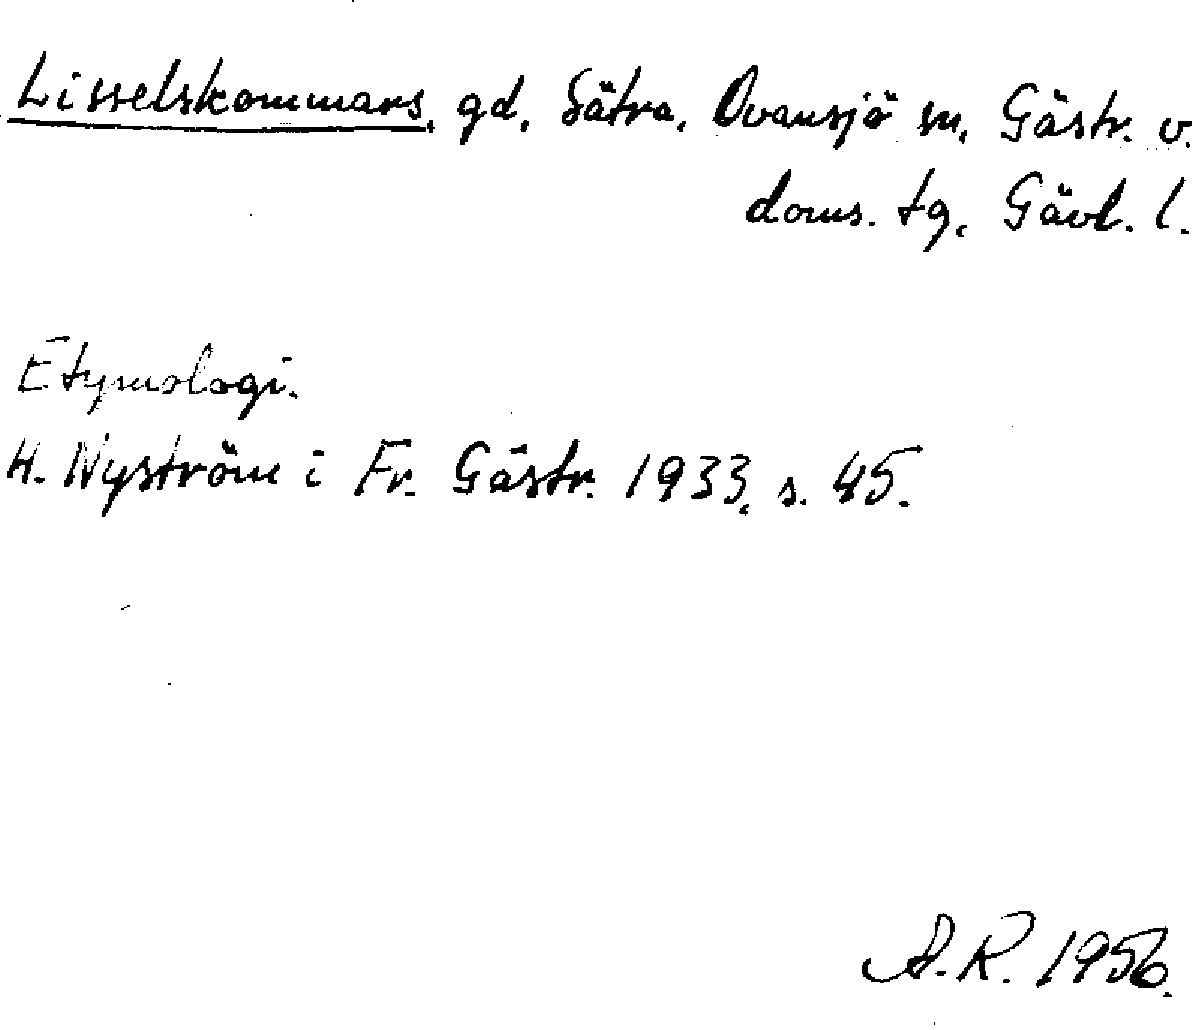 Lisselskommars, gd, Sätra, Ovansjö sn, Gästr. v.
doms. tg, Gävl. l.
Etymologi.
H. Nyström i Fr. Gästr. 1933, s. 45.
A.R. 1956.